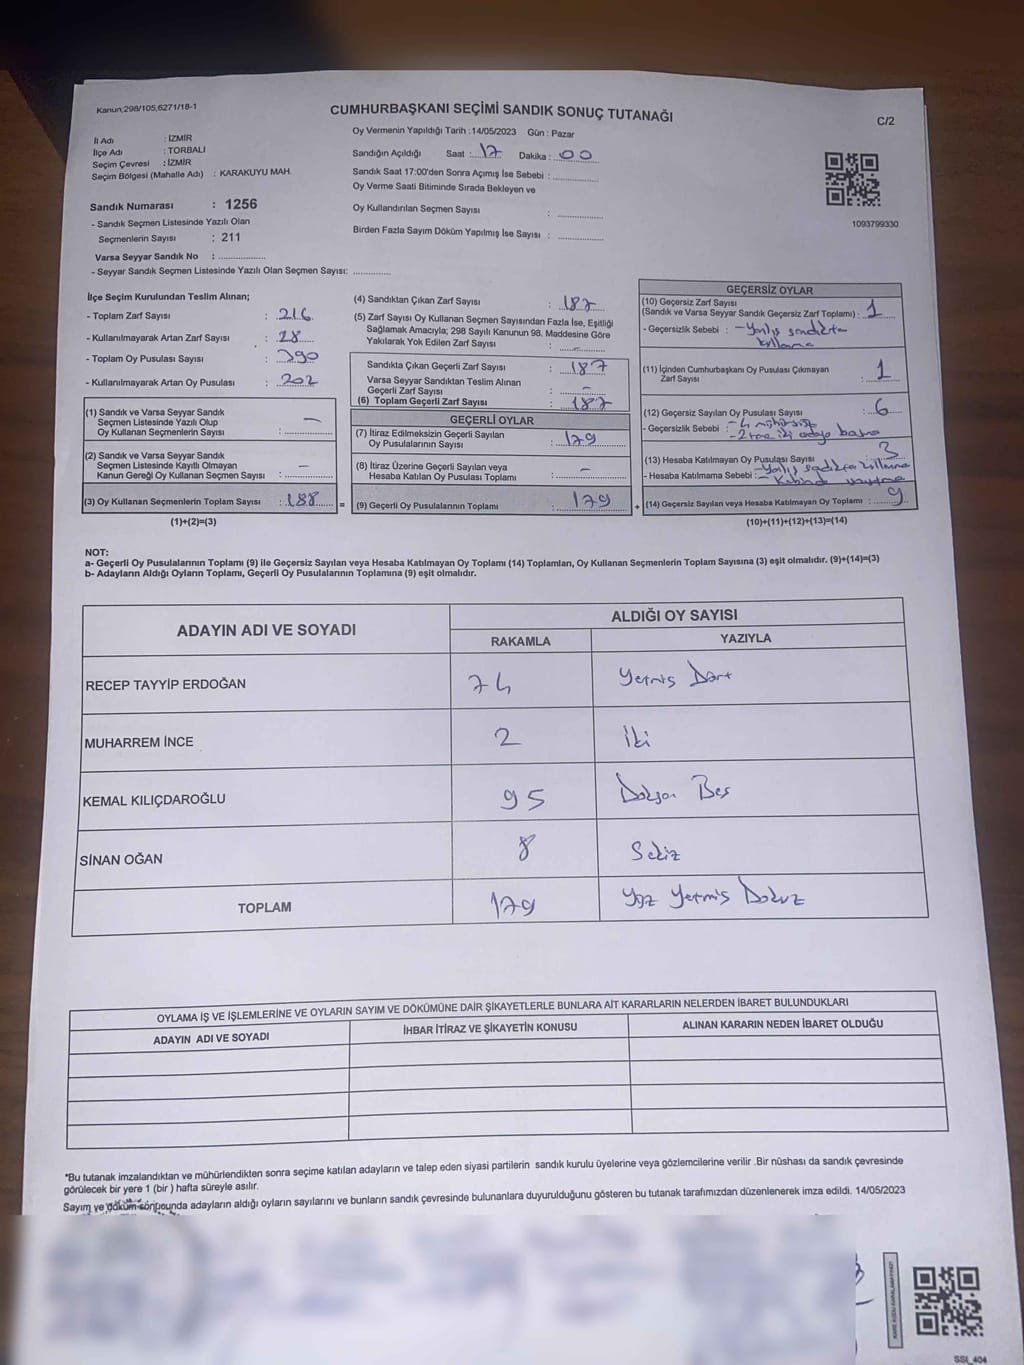 Kanun:298/105,6271/18-1
CUMHURBAŞKANI SEÇİMİ SANDIK SONUÇ TUTANAĞI
C/2
Oy Vermenin Yapıldığı Tarih :14/05/2023 Gün : Pazar
İl Adı : İZMİR
İlçe Adı : TORBALI
Seçim Çevresi : İZMİR
Seçim Bölgesi (Mahalle Adı) : KARAKUYU MAH.
Sandığın Açıldığı Saat : 17 Dakika : 00
Sandık Saat 17:00'den Sonra Açımış İse Sebebi :
Oy Verme Saati Bitiminde Sırada Bekleyen ve
Oy Kullandırılan Seçmen Sayısı :
Birden Fazla Sayım Döküm Yapılmış İse Sayısı :
1093799330
Sandık Numarası : 1256
- Sandık Seçmen Listesinde Yazılı Olan
Seçmenlerin Sayısı : 211
Varsa Seyyar Sandık No :
- Seyyar Sandık Seçmen Listesinde Yazılı Olan Seçmen Sayısı:
İlçe Seçim Kurulundan Teslim Alınan;
- Toplam Zarf Sayısı : 216
- Kullanılmayarak Artan Zarf Sayısı : 28
- Toplam Oy Pusulası Sayısı : 390
- Kullanılmayarak Artan Oy Pusulası : 202
(1) Sandık ve Varsa Seyyar Sandık
Seçmen Listesinde Yazılı Olup
Oy Kullanan Seçmenlerin Sayısı : —
(2) Sandık ve Varsa Seyyar Sandık
Seçmen Listesinde Kayıtlı Olmayan
Kanun Gereği Oy Kullanan Seçmen Sayısı : —
(3) Oy Kullanan Seçmenlerin Toplam Sayısı : 188 =
(1)+(2)=(3)
(4) Sandıktan Çıkan Zarf Sayısı : 187
(5) Zarf Sayısı Oy Kullanan Seçmen Sayısından Fazla İse, Eşitliği
Sağlamak Amacıyla; 298 Sayılı Kanunun 98. Maddesine Göre
Yakılarak Yok Edilen Zarf Sayısı : —
Sandıkta Çıkan Geçerli Zarf Sayısı : 187
Varsa Seyyar Sandıktan Teslim Alınan
Geçerli Zarf Sayısı : —
(6) Toplam Geçerli Zarf Sayısı : 187
GEÇERLİ OYLAR
(7) İtiraz Edilmeksizin Geçerli Sayılan
Oy Pusulalarının Sayısı : 179
(8) İtiraz Üzerine Geçerli Sayılan veya
Hesaba Katılan Oy Pusulası Toplamı : —
(9) Geçerli Oy Pusulalarının Toplamı : 179 +
GEÇERSİZ OYLAR
(10) Geçersiz Zarf Sayısı
(Sandık ve Varsa Seyyar Sandık Geçersiz Zarf Toplamı) : 1
- Geçersizlik Sebebi : - Yanlış sandıkta
kullanma
(11) İçinden Cumhurbaşkanı Oy Pusulası Çıkmayan
Zarf Sayısı : 1
(12) Geçersiz Sayılan Oy Pusulası Sayısı : 6
- Geçersizlik Sebebi : - 4 mühürsüz
- 2 tane iki adaya basma
(13) Hesaba Katılmayan Oy Pusulası Sayısı : 3
- Hesaba Katılmama Sebebi : - Yanlış
(14) Geçersiz Sayılan veya Hesaba Katılmayan Oy Toplamı : 9
(10)+(11)+(12)+(13)=(14)
NOT:
a- Geçerli Oy Pusulalarının Toplamı (9) ile Geçersiz Sayılan veya Hesaba Katılmayan Oy Toplamı (14) Toplamları, Oy Kullanan Seçmenlerin Toplam Sayısına (3) eşit olmalıdır. (9)+(14)=(3)
b- Adayların Aldığı Oyların Toplamı, Geçerli Oy Pusulalarının Toplamına (9) eşit olmalıdır.
ADAYIN ADI VE SOYADI
ALDIĞI OY SAYISI
RAKAMLA YAZIYLA
RECEP TAYYİP ERDOĞAN 74 Yetmiş Dört
MUHARREM İNCE 2 İki
KEMAL KILIÇDAROĞLU 95 Doksan Beş
SİNAN OĞAN 8 Sekiz
TOPLAM 179 Yüz Yetmiş Dokuz
OYLAMA İŞ VE İŞLEMLERİNE VE OYLARIN SAYIM VE DÖKÜMÜNE DAİR ŞİKAYETLERLE BUNLARA AİT KARARLARIN NELERDEN İBARET BULUNDUKLARI
ADAYIN ADI VE SOYADI İHBAR İTİRAZ VE ŞİKAYETİN KONUSU ALINAN KARARIN NEDEN İBARET OLDUĞU
*Bu tutanak imzalandıktan ve mühürlendikten sonra seçime katılan adayların ve talep eden siyasi partilerin sandık kurulu üyelerine veya gözlemcilerine verilir .Bir nüshası da sandık çevresinde
görülecek bir yere 1 (bir ) hafta süreyle asılır.
Sayım ve döküm sonucunda adayların aldığı oyların sayılarını ve bunların sandık çevresinde bulunanlara duyurulduğunu gösteren bu tutanak tarafımızdan düzenlenerek imza edildi. 14/05/2023
SSI_404